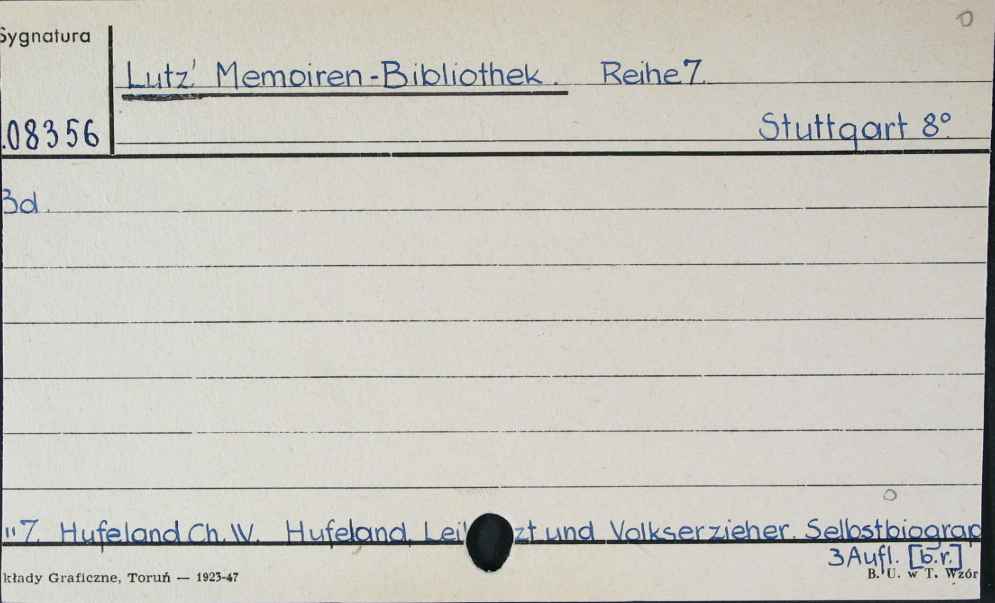 Sygnatura
Lutz' Memoiren-Bibliothek. Reihe 7.
08356
Stuttgart 8°
Bd.
"7. Hufeland Ch. W. Hufeland, Lei zt und Volkserzieher. Selbstbiograp
3 Aufl. [b.r.]
kłady Graficzne, Toruń — 1923-47
B. U. w T. Wzór